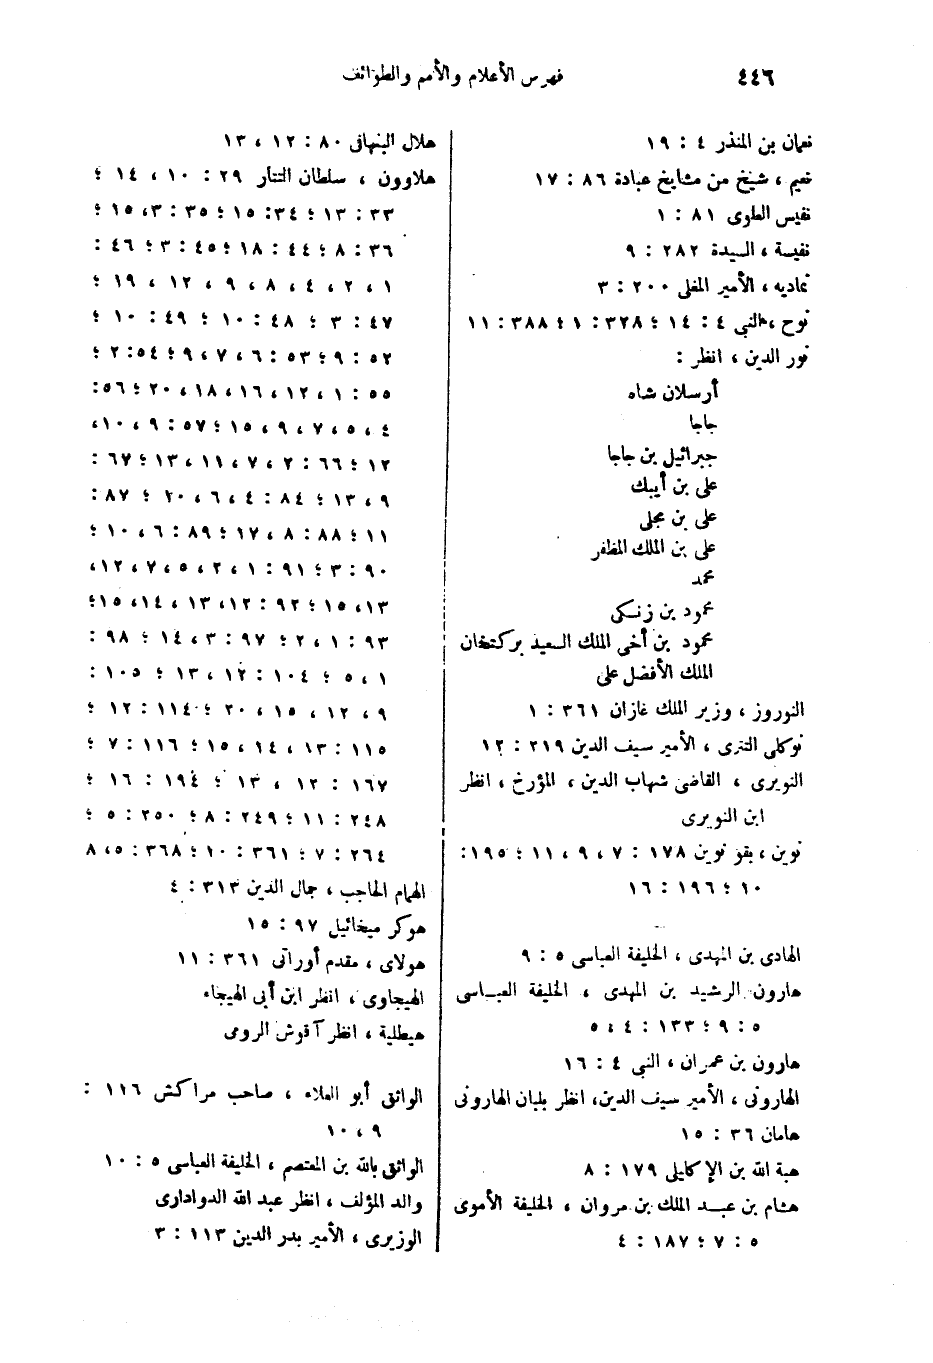 ٤٤٦
فهرس الأعلام والأمم والطوائف
نعمان بن المنذر ٤ : ١٩
نعيم ، شيخ من مشايخ عبادة ٨٦ : ١٧
نفيس الطوى ٨١ : ١
نفيسة ، السيدة ٢٨٢ : ٩
نماديه ، الأمير المغلى ٢٠٠ : ٣
نوح ، النبى ٤ : ١٤ ؛ ٣٢٨ : ١ ؛ ٣٨٨ : ١١
نور الدين ، انظر :
أرسلان شاه
جاجا
جبرائيل بن جاجا
على بن أيبك
على بن مجلى
على بن الملك المظفر
محمد
محمود بن زنكى
محمود بن أخى الملك السعيد بركتخان
الملك الأفضل على
النوروز ، وزير الملك غازان ٣٦١ : ١
نوكلى التترى ، الأمير سيف الدين ٢١٩ : ١٢
النويرى ، القاضى شهاب الدين ، المؤرخ ، انظر
ابن النويرى
نوين ، بقو نوين ١٧٨ : ٧ ، ٩ ، ١١ ؛ ١٩٥ :
١٠ ؛ ١٩٦ : ١٦
الهادى بن المهدى ، الخليفة العباسى ٥ : ٩
هارون الرشيد بن المهدى ، الخليفة العباسى
٥ : ٩ ؛ ١٣٣ : ٤ ، ٥
هارون بن عمران ، النبى ٤ : ١٦
الهارونى ، الأمير سيف الدين، انظر بلبان الهارونى
هامان ٣٦ : ١٥
هبة الله بن الإكايلى ١٧٩ : ٨
هشام بن عبد الملك بن مروان ، الخليفة الأموى
٥ : ٧ ؛ ١٨٧ : ٤
هلال النبهانى ٨٠ : ١٢ ، ١٣
هلاوون ، سلطان التتار ٢٩ : ١٠ ، ١٤ ؛
٣٣ : ١٣ ؛ ٣٤ : ١٥ ؛ ٣٥ : ٣، ١٥ ؛
٣٦ : ٨ ؛ ٤٤ : ١٨ ؛ ٤٥ : ٣ ؛ ٤٦ :
١ ، ٢ ، ٤ ، ٨ ، ٩ ، ١٢ ، ١٩ ؛
٤٧ : ٣ ؛ ٤٨ : ١٠ ؛ ٤٩ : ١٠ ؛
٥٢ : ٩ ؛ ٥٣ : ٦ ، ٧ ، ٩ ؛ ٥٤: ٢ ؛
٥٥ : ١ ، ١٢ ، ١٦ ، ١٨ ، ٢٠ ؛ ٥٦:
٤ ، ٥ ، ٧ ، ٩ ، ١٥ ؛ ٥٧ : ٩ ، ١٠،
١٢ ؛ ٦٦ : ٢ ، ٧ ، ١١ ، ١٣ ؛ ٦٧ :
٩ ، ١٣ ؛ ٨٤ : ٤ ، ٦ ، ٢٠ ؛ ٨٧ :
١١ ؛ ٨٨ : ٨ ، ١٧ ؛ ٨٩ : ٦ ، ١٠ ؛
٩٠ : ٣ ؛ ٩١ : ١ ، ٢ ، ٥ ، ٧ ، ١٢،
١٣، ١٥ ؛ ٩٢ : ١٢، ١٣ ، ١٤، ١٥؛
٩٣ : ١ ، ٢ ؛ ٩٧ : ٣ ، ١٤ ؛ ٩٨ :
١ ، ٥ ؛ ١٠٤ : ١٢ ، ١٣ ؛ ١٠٥ :
٩ ، ١٢ ، ١٥ ، ٢٠ ؛ ١١٤ : ١٢ ؛
١١٥ : ١٣ ، ١٤ ، ١٥ ؛ ١١٦ : ٧ ؛
١٦٧ : ١٢ ، ١٣ ؛ ١٩٤ : ١٦ ؛
٢٤٨ : ١١ ؛ ٢٤٩ : ٨ ؛ ٢٥٠ : ٥ ؛
٢٦٤ : ٧ ؛ ٣٦١ : ١٠ ؛ ٣٦٨ : ٥، ٨
الهمام الحاجب ، جمال الدين ٣١٣ : ٤
هوكر ميخائيل ٩٧ : ١٥
هولاى ، مقدم أوراتى ٣٦١ : ١١
الهيجاوى ، انظر ابن أبى الهيجاء
هيطلية ، انظر آقوش الرومى
الواثق أبو العلاء ، صاحب مراكش ١١٦ :
٩ ، ١٠
الواثق بالله بن المعتصم ، الخليفة العباسى ٥ : ١٠
والد المؤلف ، انظر عبد الله الدوادارى
الوزيرى ، الأمير بدر الدين ١١٣ : ٣